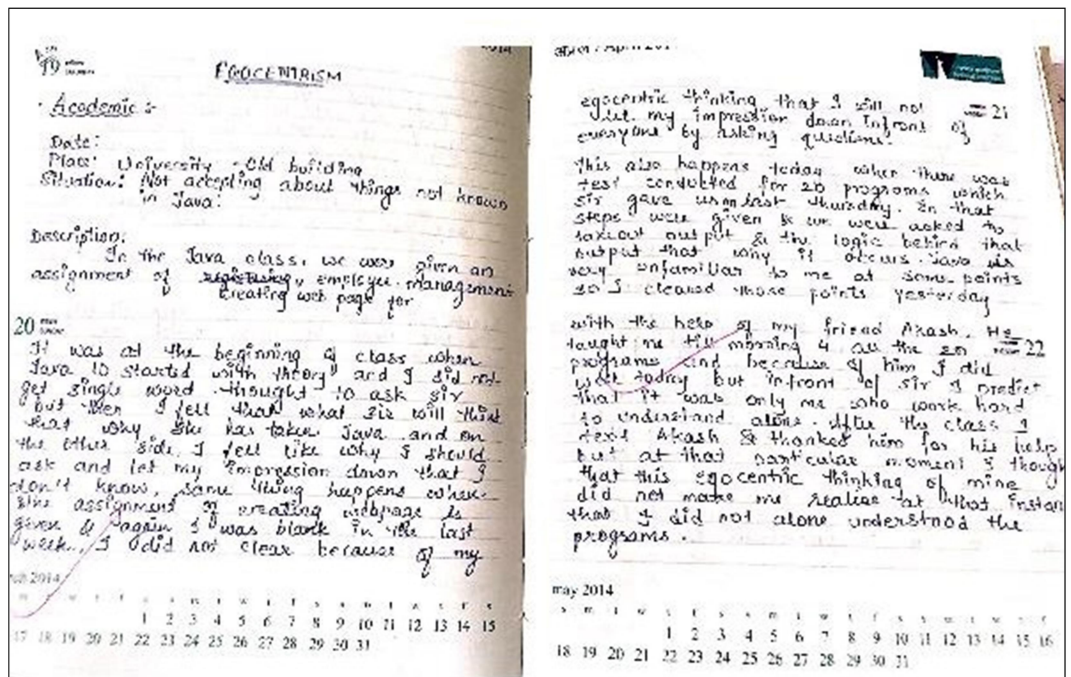 2014
EGOCENTRISM
· Academic :-
Date:
Place: University - Old building
Situation: Not accepting about things not known
in Java.
Description:
In the Java class, we were given an
assignment of employee management
creating web page for
20
It was at the beginning of class when
Java is started with theory and I did not
get single word thought to ask sir
but then I fell that what sir will think
that why she has taken Java and on
the other side, I feel like why I should
ask and let my impression down that I
don't know, same thing happens when
the assignment of creating webpage is
given & again I was blank in the last
week. I did not clear because of my
2014
1 2 3 4 5 6 7 8 9 10 11 12 13 14 15
17 18 19 20 21 22 23 24 25 26 27 28 29 30 31
April 201
egocentric thinking that I will not
let my impression down infront of
everyone by asking questions.
21
This also happens today when there was
test conducted for 20 programs which
sir gave us last thursday. In that
steps were given & we were asked to
output & the logic behind that
output that why it occurs. Java is
very unfamiliar to me at some points
so I cleared those points yesterday
with the help of my friend Akash. He
taught me till morning 4 all the 20
22
programs and because of him I did
well today but infront of sir I predict
that it was only me who work hard
to understand alone. After the class I
text Akash & thanked him for his help
but at that particular moment I though
that this egocentric thinking of mine
did not make me realise at that instan
that I did not alone understood the
programs.
may 2014
s m t w t f s s m t w t f s s m t w t f s
1 2 3 4 5 6 7 8 9 10 11 12 13 14 15 16
18 19 20 21 22 23 24 25 26 27 28 29 30 31